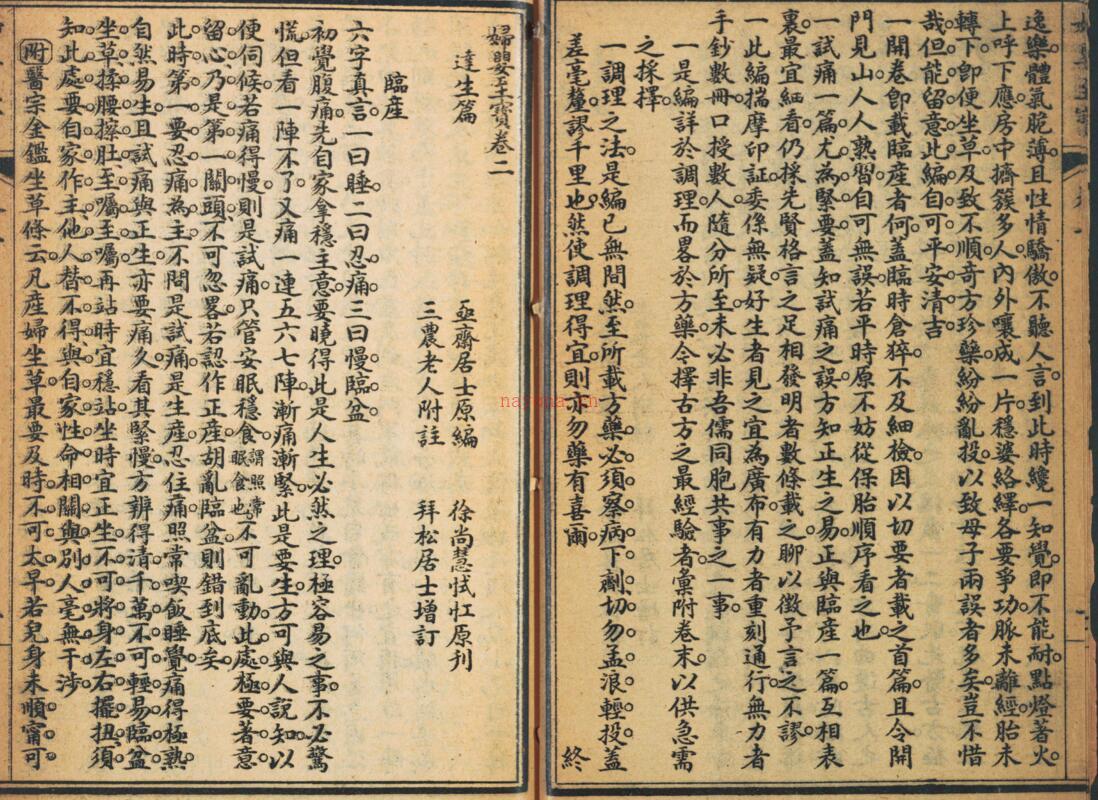 逸樂體氣脆薄且性情驕傲不聽人言到此時纔一知覺即不能耐點燈著火
上呼下應房中擠簇多人內外嚷成一片穩婆絡繹各要爭功脈未離經胎未
轉下卽便坐草及致不順奇方珍藥紛紛亂投以致母子兩誤者多矣豈不惜
哉但能留意此編自可平安清吉
一開卷卽載臨産者何蓋臨時倉猝不及細檢因以切要者載之首篇且令開
門見山人人熟習自可無誤若平時原不妨從保胎順序看之也
一試痛一篇尤為緊要蓋知試痛之誤方知正生之易正與臨産一篇互相表
裏最宜細看仍採先賢格言之足相發明者數條載之聊以徵予言之不謬
一此編揣摩印証委係無疑好生者見之宜為廣布有力者重刻通行無力者
手鈔數冊口授數人隨分所至未必非吾儒同胞共事之一事
一是編詳於調理而畧於方藥今擇古方之最經驗者彙附卷末以供急需
之採擇
一調理之法是編已無間然至所載方藥必須察病下劑切勿孟浪輕投蓋
差毫釐謬千里也然使調理得宜則亦勿藥有喜爾 終
婦嬰至寶卷二
達生篇
亟齋居士原編 徐尚慧忒忹原刊
三農老人附註 拜松居士增訂
臨産
六字真言一曰睡二曰忍痛三曰慢臨盆
初覺腹痛先自家拿穩主意要曉得此是人生必然之理極容易之事不必驚
慌但看一陣不了又痛一連五六七陣漸痛漸緊此是要生方可與人說知以
便伺候若痛得慢則是試痛只管安眠穩食謂照常眠食也不可亂動此處極要著意
留心乃是第一關頭不可忽畧若認作正産胡亂臨盆則錯到底矣
此時第一要忍痛為主不問是試痛是生産忍住痛照常喫飯睡覺痛得極熟
自然易生且試痛與正生亦要痛久看其緊慢方辨得清千萬不可輕易臨盆
坐草揉腰擦肚至囑至囑再站時宜穩站坐時宜正坐不可將身左右擺扭須
知此處要自家作主他人替不得與自家性命相關與別人毫無干涉
附醫宗金鑑坐草條云凡産婦坐草最要及時不可太早若兒身未順甯可